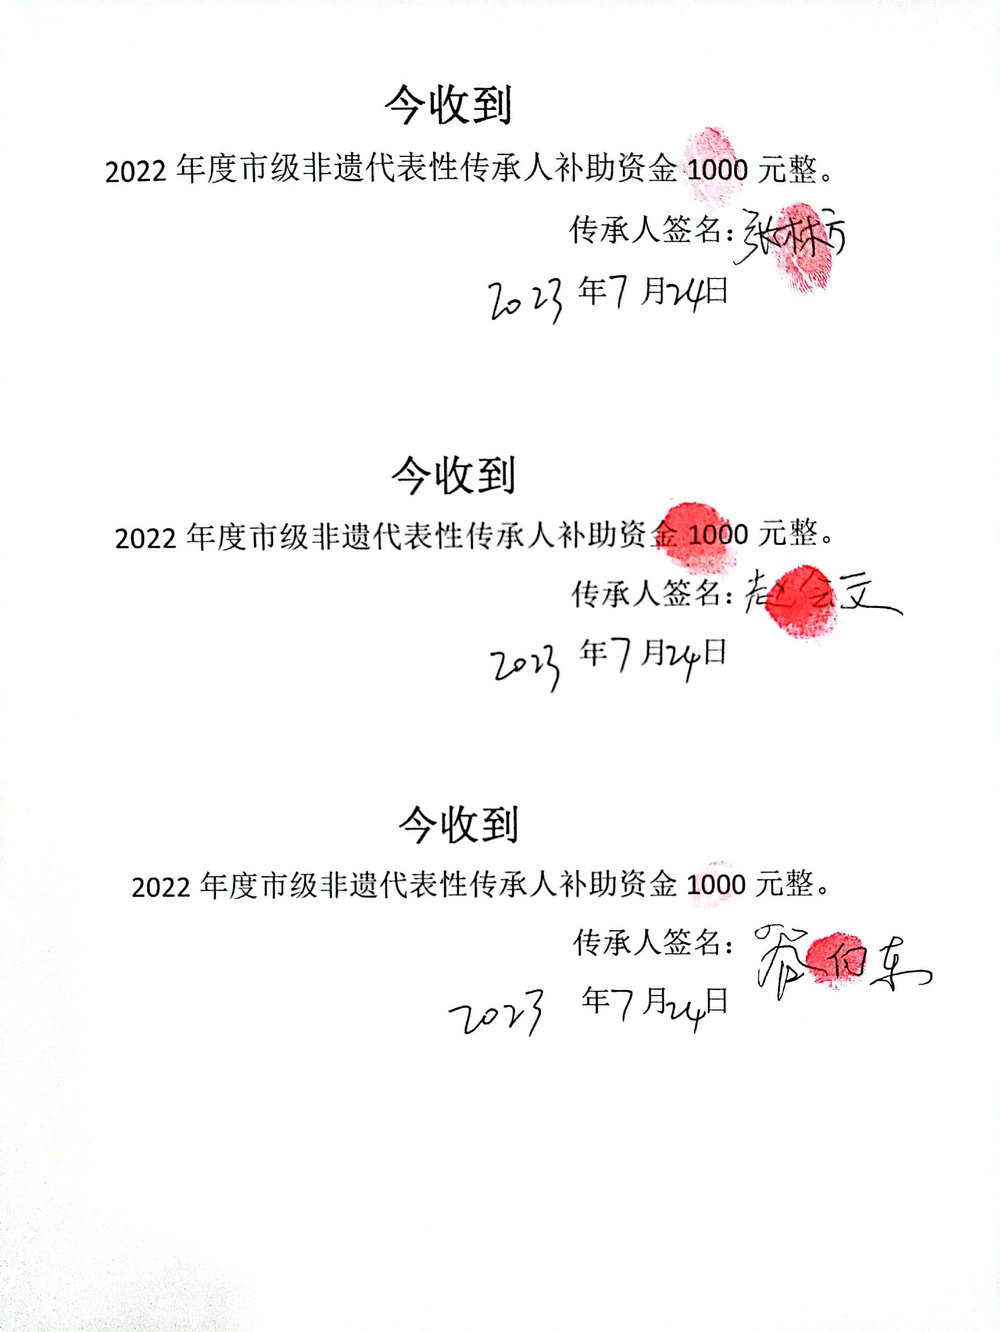 今收到
2022 年度市级非遗代表性传承人补助资金 1000 元整。
传承人签名：张林方
2023 年 7 月 24 日
今收到
2022 年度市级非遗代表性传承人补助资金 1000 元整。
传承人签名：赵会文
2023 年 7 月 24 日
今收到
2022 年度市级非遗代表性传承人补助资金 1000 元整。
传承人签名：向东
2023 年 7 月 24 日